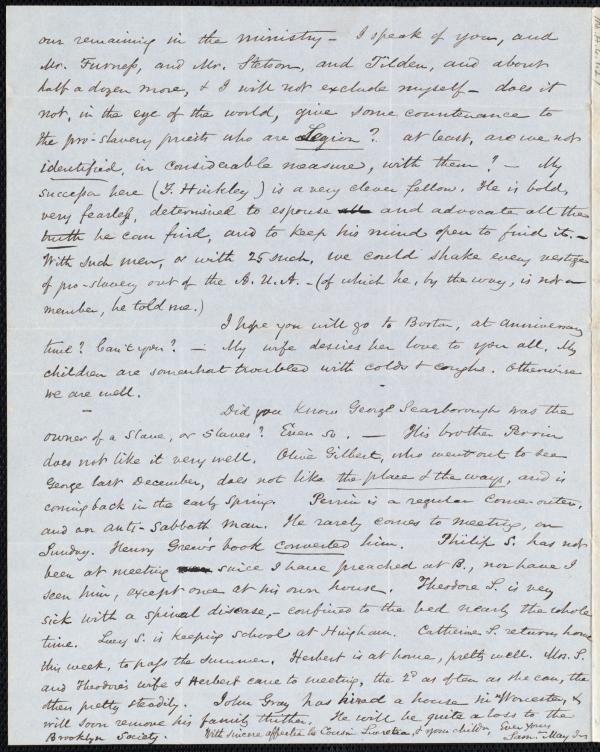 our remaining in the ministry - I speak of you, and
Mr. Furness, and Mr. Stetson, and Tilden, and about
half a dozen more, & I will not exclude myself - does it
not, in the eye of the world, give some countenance to
the pro-slavery priests who are Legion? at least, are we not
identified, in considerable measure, with them? - My
successor here (F. Hinkley) is a very clever fellow. He is bold,
very fearless, determined to espouse all and advocate all the
truth he can find, and to keep his mind open to find it. -
With such men, or with 25 such, we could shake every vestige
of pro-slavery out of the A.U.A. - (of which he, by the way, is not a
member, he told me.)
I hope you will go to Boston, at Anniversary
time? Can't you? - My wife desires her love to you all. My
children are somewhat troubled with colds & coughs. Otherwise
we are well.
Did you know George Scarborough was the
owner of a slave, or slaves? Even so. - His brother Perrin
does not like it very well. Olive Gilbert, who went out to see
George last December, does not like the place & the ways, and is
coming back in the early Spring. Perrin is a regular Come-outer,
and an anti-Sabbath man. He rarely comes to meeting, on
Sunday. Henry Grew's book converted him. Philip S. has not
been at meeting since I have preached at B., nor have I
seen him, except once at his own house. Theodore S. is very
sick with a spinal disease, - confined to the bed nearly the whole
time. Lucy S. is keeping school at Hingham. Catherine S. returns home
this week, to pass the summer. Herbert is at home, pretty well. Mrs. S.
and Theodore's wife & Herbert came to meeting, the 2d as often as she can, the
others pretty steadily. John Gray has hired a house in Worcester, &
will soon remove his family thither. He will be quite a loss to the
Brooklyn Society. With sincere affection to Cousin Lucretia & your children Ever Yours
Saml. May Jr